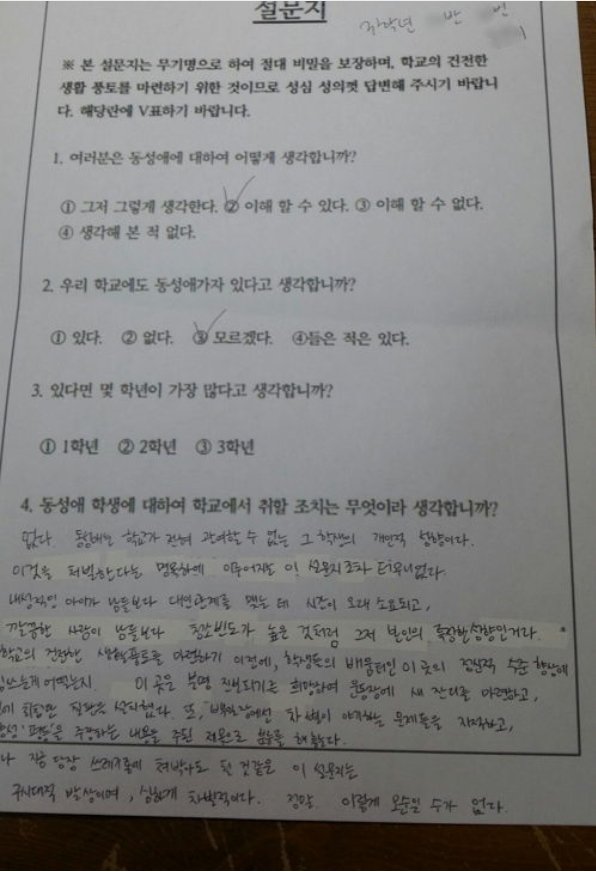 설문지
학년 반 번
※ 본 설문지는 무기명으로 하여 절대 비밀을 보장하며, 학교의 건전한
생활 풍토를 마련하기 위한 것이므로 성심 성의껏 답변해 주시기 바랍니
다. 해당란에 V표하기 바랍니다.
1. 여러분은 동성애에 대하여 어떻게 생각합니까?
① 그저 그렇게 생각한다. ② 이해 할 수 있다. ③ 이해 할 수 없다.
④ 생각해 본 적 없다.
2. 우리 학교에도 동성애가자 있다고 생각합니까?
① 있다. ② 없다. ③ 모르겠다. ④들은 적은 있다.
3. 있다면 몇 학년이 가장 많다고 생각합니까?
① 1학년 ② 2학년 ③ 3학년
4. 동성애 학생에 대하여 학교에서 취할 조치는 무엇이라 생각합니까?
없다 동성애는 학교가 전혀 관여할 수 없는 그 학생의 개인적 성향이다.
이것을 처벌한다는 명목하에 이루어지는 이 설문지조차 터무니없다.
내성적인 아이가 남들보다 대인관계를 맺는 데 시간이 오래 소요되고,
깔끔한 사람이 남들보다 청소빈도가 높은 것처럼 그저 본인의 특정한 성향인거다.
학교의 건전한 생활풍토를 마련하기 이전에, 학생들의 배움터인 이 곳의 정신적 수준 향상에
힘쓰는게 어떻는지. 이 곳은 분명 진보되기를 희망하여 운동장에 새 잔디를 마련하고,
설치했다. 또, 백일장에선 차별이 야기하는 문제들을 지적하고,
'평등'을 주장하는 내용을 주된 제목으로 했다.
지금 당장 쓰레기통에 쳐박아도 될 것같은 이 설문지는
구시대적 발상이며, 심하게 차별적이다. 정말 이렇게 모순일 수가 없다.